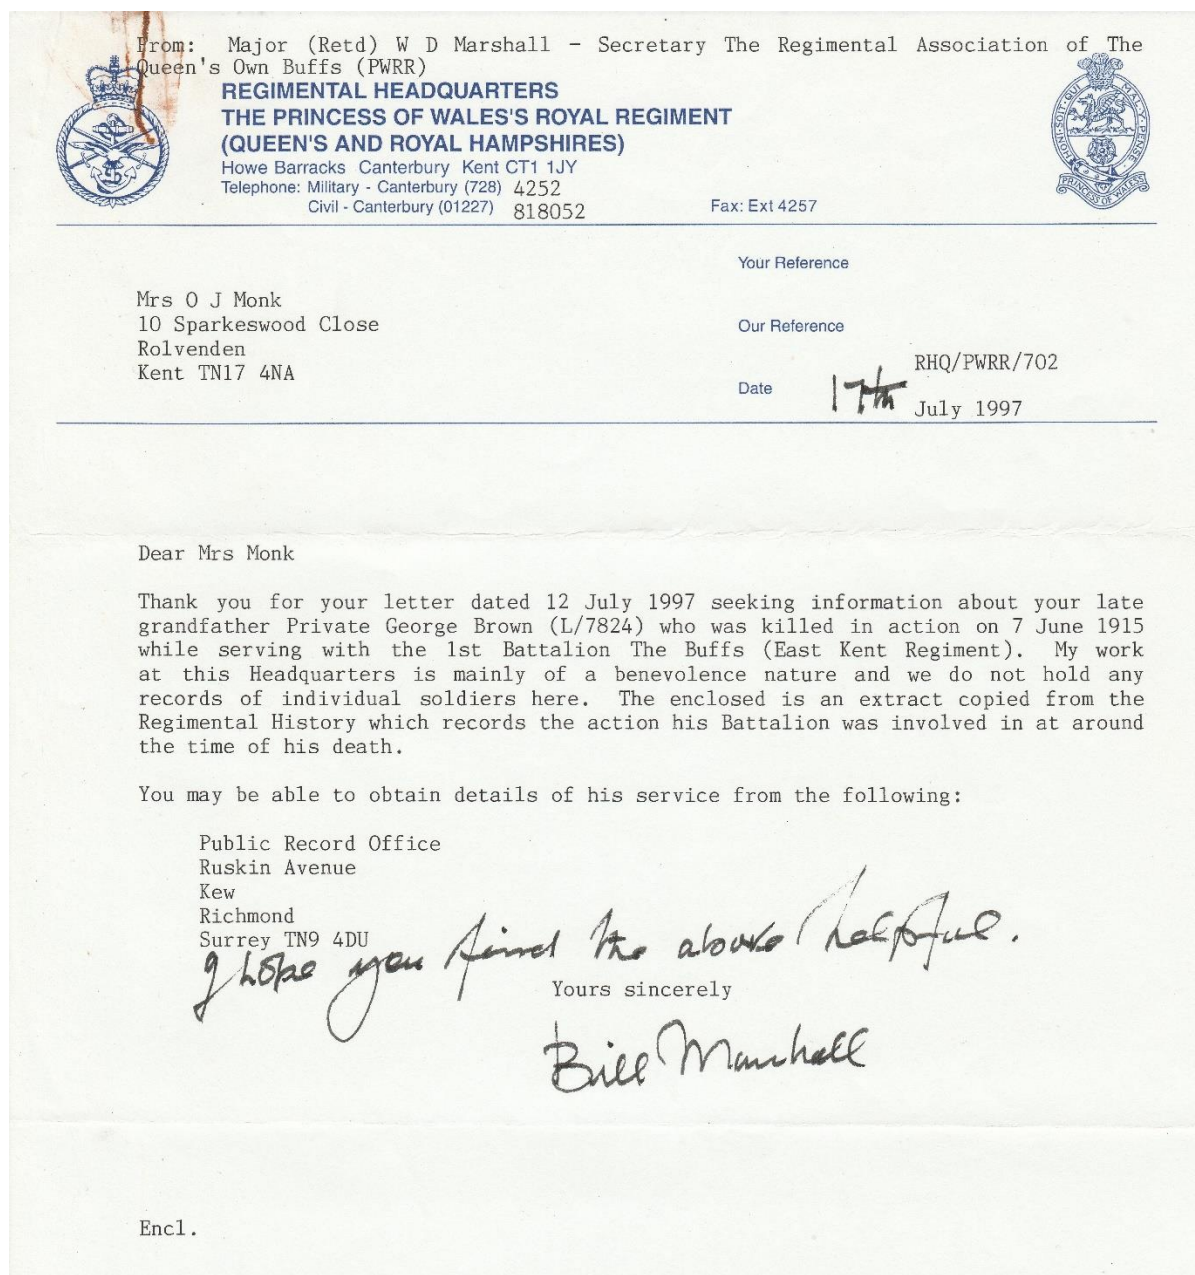 From: Major (Retd) W D Marshall - Secretary The Regimental Association of The
Queen's Own Buffs (PWRR)
REGIMENTAL HEADQUARTERS
THE PRINCESS OF WALES'S ROYAL REGIMENT
(QUEEN'S AND ROYAL HAMPSHIRES)
Howe Barracks Canterbury Kent CT1 1JY
Telephone: Military - Canterbury (728) 4252
Civil - Canterbury (01227) 818052
Fax: Ext 4257
HONI·SOIT·QUI·MAL·Y·PENSE
PRINCESS OF WALES'S
Your Reference
Mrs O J Monk
10 Sparkeswood Close
Rolvenden
Kent TN17 4NA
Our Reference
RHQ/PWRR/702
Date 17th July 1997
Dear Mrs Monk
Thank you for your letter dated 12 July 1997 seeking information about your late
grandfather Private George Brown (L/7824) who was killed in action on 7 June 1915
while serving with the 1st Battalion The Buffs (East Kent Regiment). My work
at this Headquarters is mainly of a benevolence nature and we do not hold any
records of individual soldiers here. The enclosed is an extract copied from the
Regimental History which records the action his Battalion was involved in at around
the time of his death.
You may be able to obtain details of his service from the following:
Public Record Office
Ruskin Avenue
Kew
Richmond
Surrey TN9 4DU
I hope you find the above helpful.
Yours sincerely
Bill Marshall
Encl.